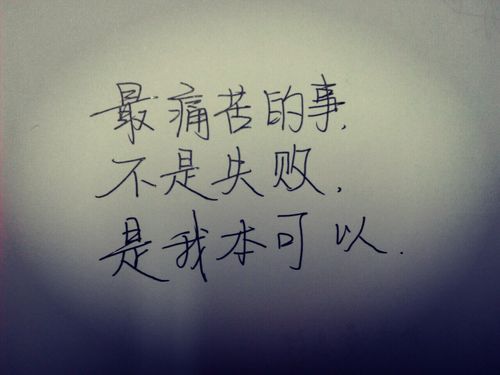 最痛苦的事,
不是失败,
是我本可以.